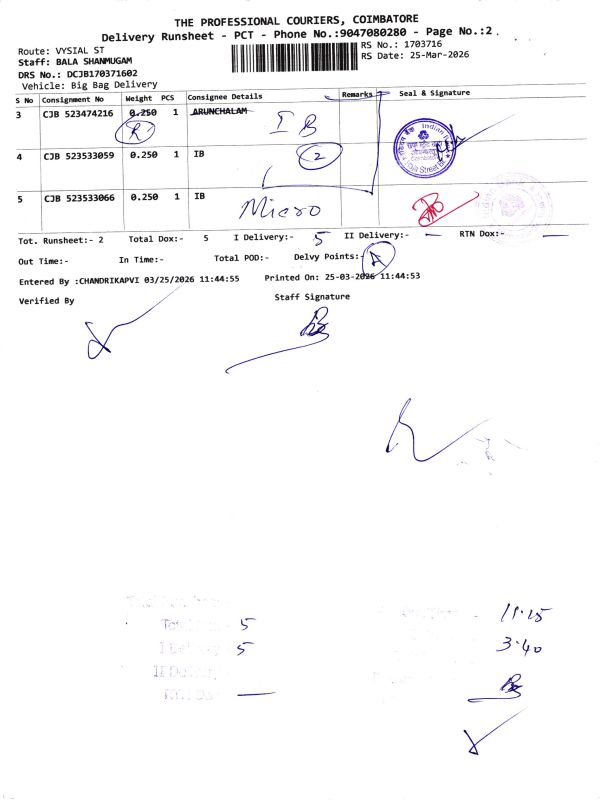 THE PROFESSIONAL COURIERS, COIMBATORE
Delivery Runsheet - PCT - Phone No.:9047080280 - Page No.:2
Route: VYSIAL ST
RS No.: 1703716
Staff: BALA SHANMUGAM
RS Date: 25-Mar-2026
DRS No.: DCJB170371602
Vehicle: Big Bag Delivery
S No Consignment No Weight PCS Consignee Details Remarks Seal & Signature
3 CJB 523474216 0.250 1 ARUNCHALAM IB
R
4 CJB 523533059 0.250 1 IB 2
Indian
5 CJB 523533066 0.250 1 IB
Micro
Tot. Runsheet:- 2 Total Dox:- 5 I Delivery:- 5 II Delivery:- — RTN Dox:- —
Out Time:- In Time:- Total POD:- Delvy Points:- A
Entered By :CHANDRIKAPVI 03/25/2026 11:44:55 Printed On: 25-03-2026 11:44:53
Verified By Staff Signature
11.15
5
3.40
5